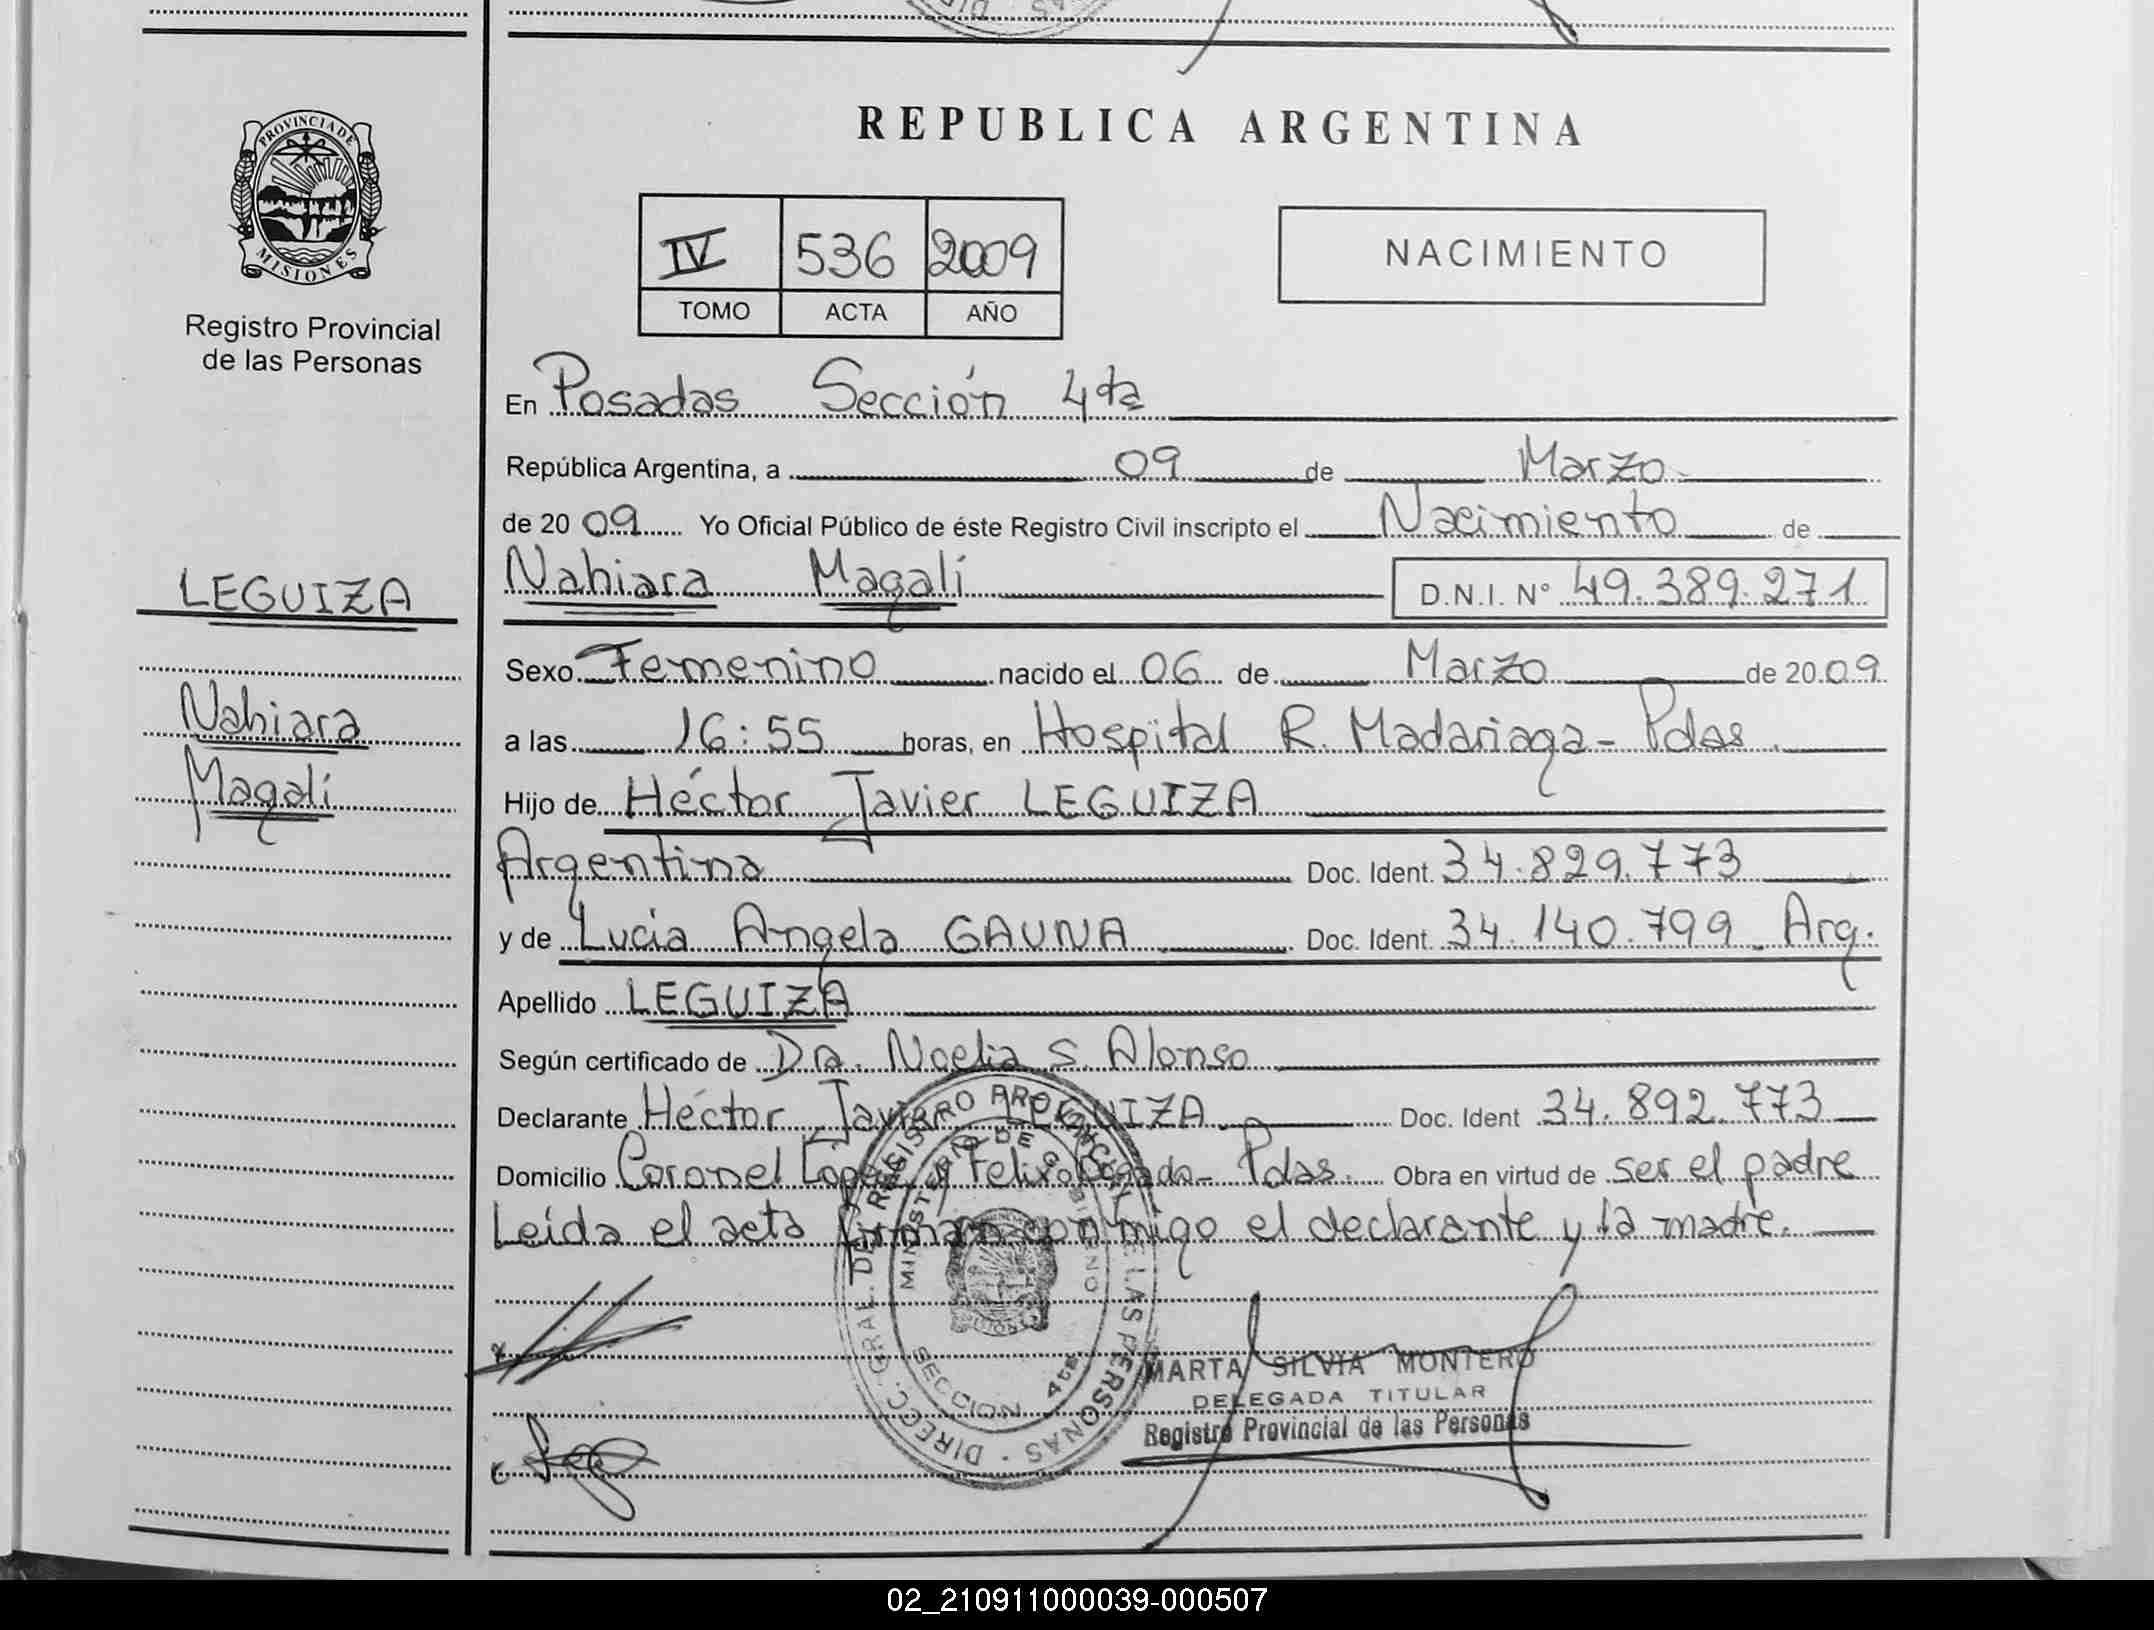 REPUBLICA ARGENTINA
PROVINCIA DE MISIONES
Registro Provincial
de las Personas
IV 536 2009
TOMO ACTA AÑO
NACIMIENTO
En Posadas Sección 4ta
República Argentina, a 09 de Marzo
de 2009 Yo Oficial Público de éste Registro Civil inscripto el Nacimiento de
LEGUIZA
Nahiara
Magalí
Nahiara Magalí D.N.I. N° 49.389.271
Sexo Femenino nacido el 06 de Marzo de 2009
a las 16:55 horas, en Hospital R. Madariaga - Pdas.
Hijo de Héctor Javier LEGUIZA
Argentina Doc. Ident. 34.829.773
y de Lucia Angela GAUNA Doc. Ident. 34.140.799 Arg.
Apellido LEGUIZA
Según certificado de Dra. Noelia S. Alonso
Declarante Héctor Javier LEGUIZA Doc. Ident 34.892.773
Domicilio Coronel López y Felix Bogado - Pdas. Obra en virtud de ser el padre
Leída el acta firman conmigo el declarante y la madre.
DIREC. GRAL. DEL REGISTRO PROVINCIAL DE LAS PERSONAS
MINISTERIO DE GOBIERNO
SECCION 4ta
MARTA SILVIA MONTERO
DELEGADA TITULAR
Registro Provincial de las Personas
02_210911000039-000507